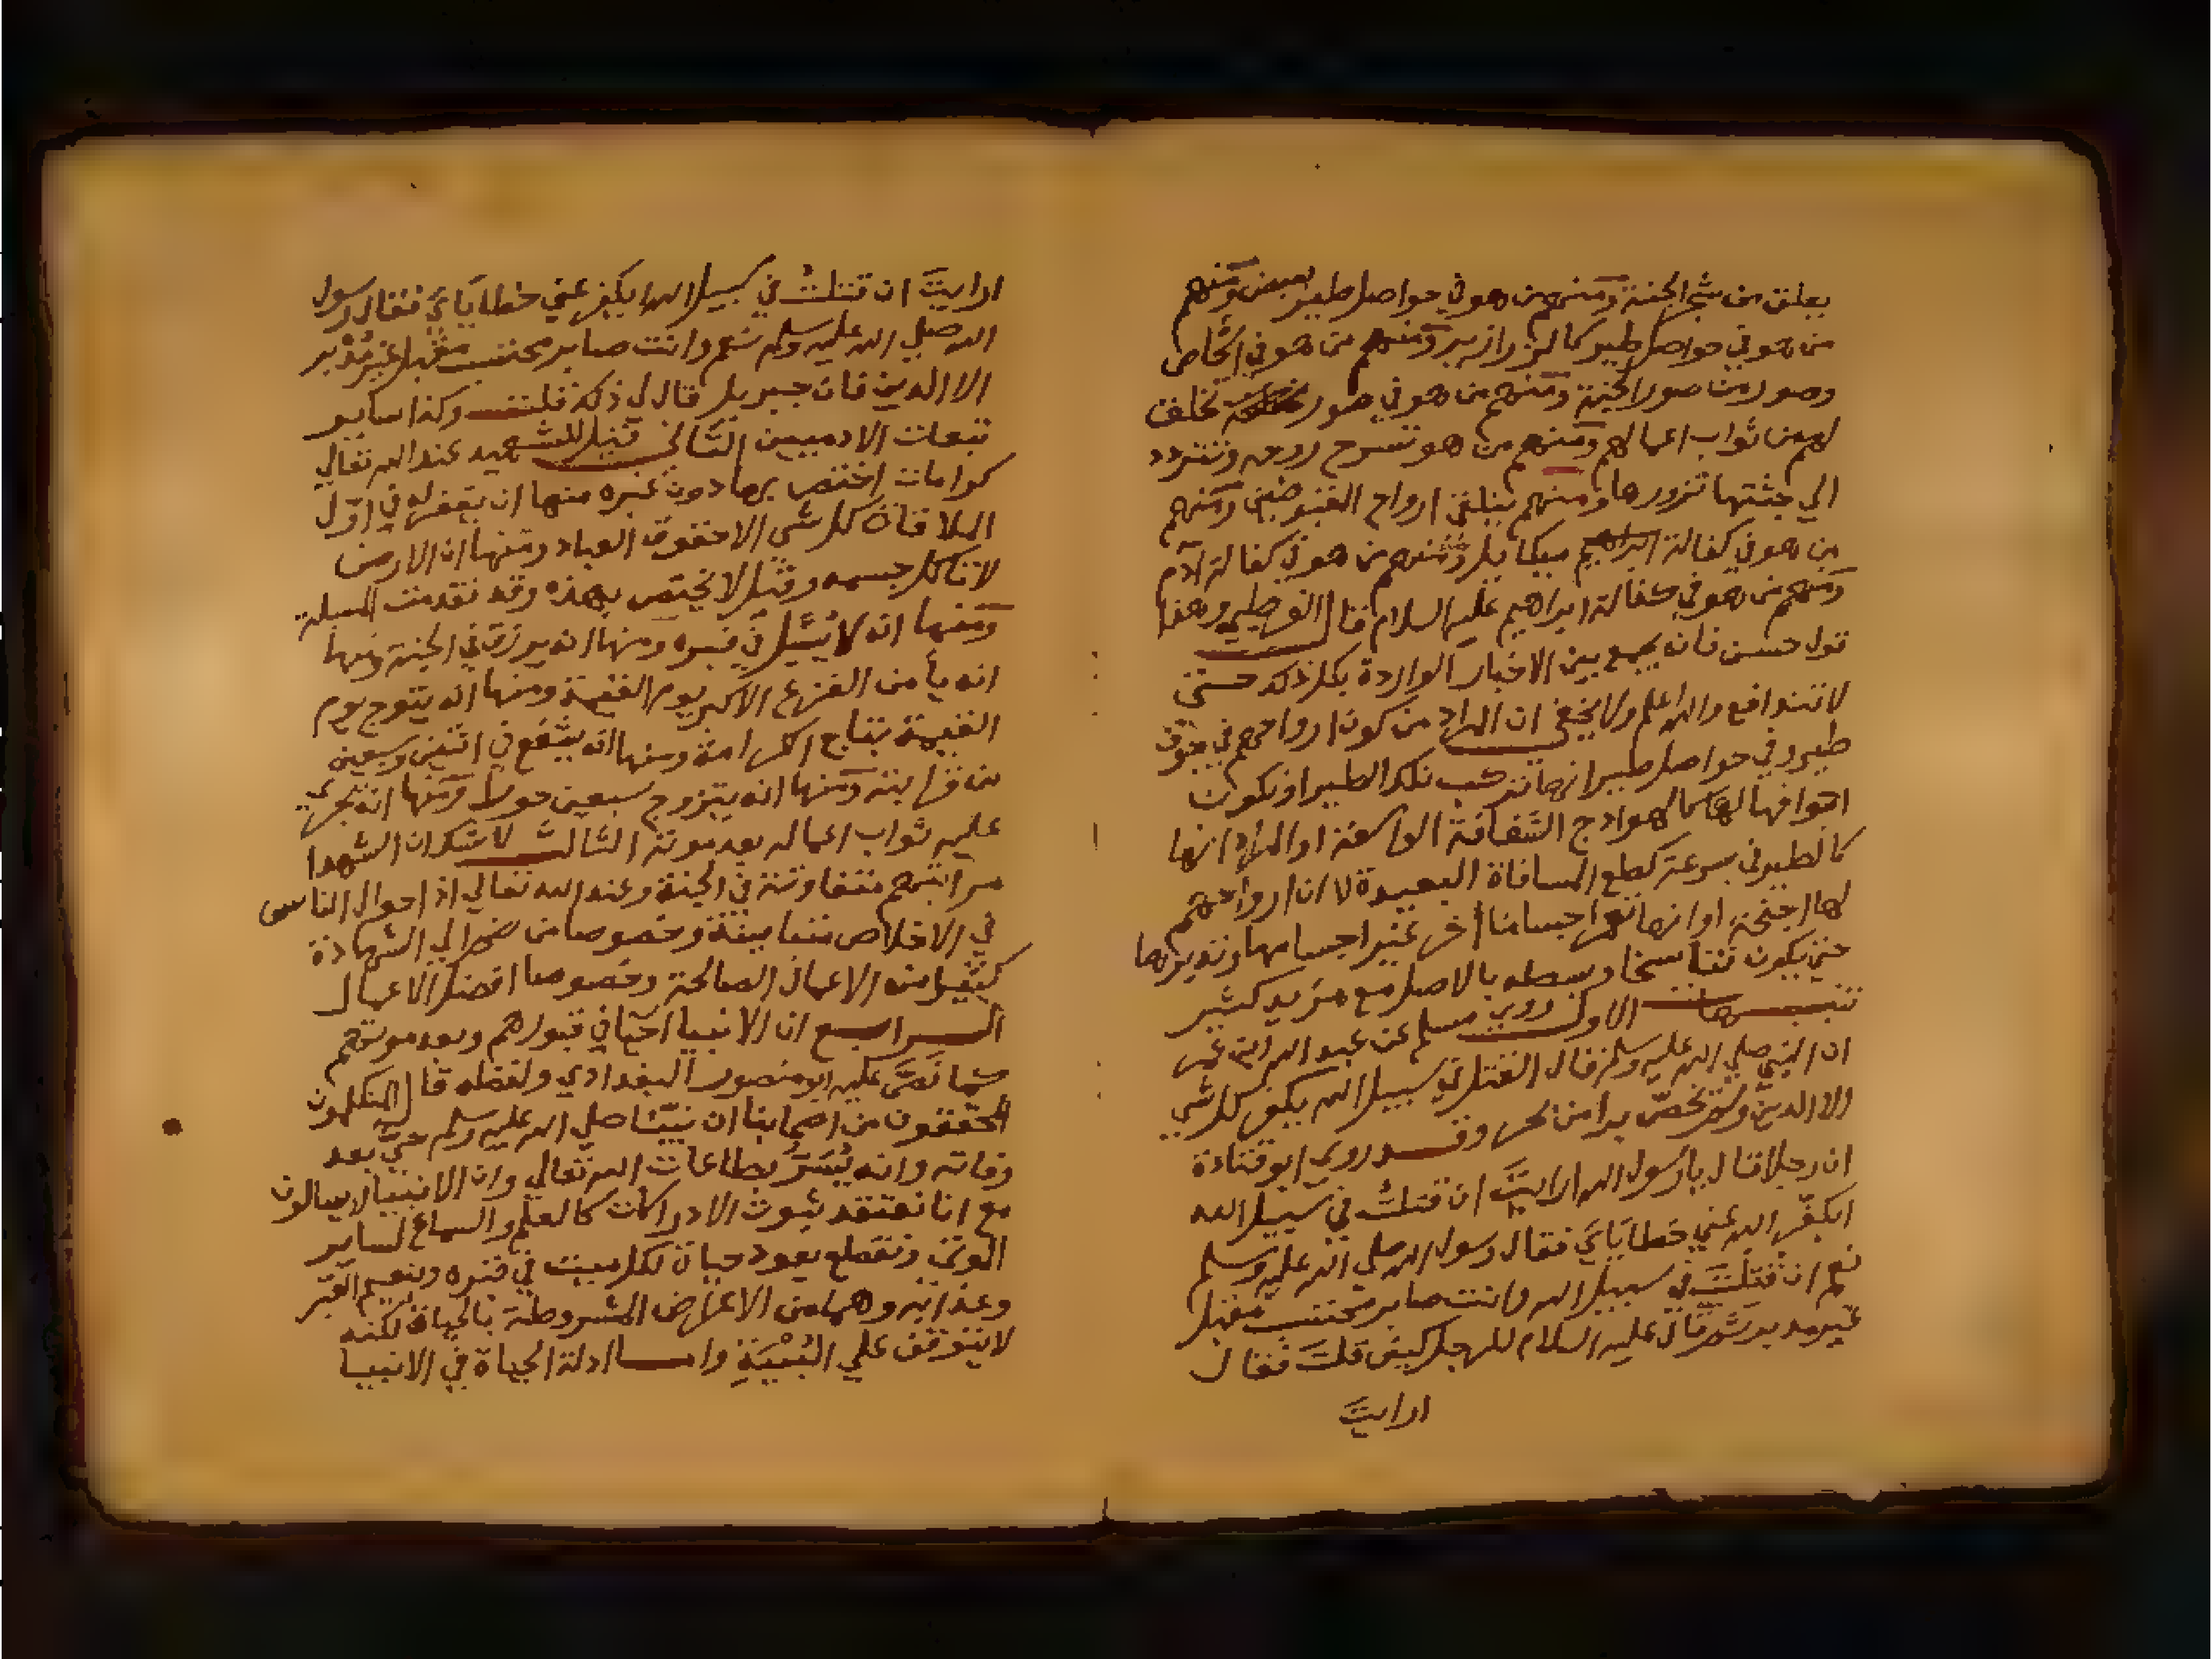 يعلق من شجر الجنة ومنهم من هو في حواصل طير بعض ومنهم
من هو في حواصل طير كالزرازير ومنهم من هو في اشخاص
وصور من صور الجنة ومنهم من هو في صور تخلق
لهم من ثواب اعمالهم ومنهم من هو تسرح روحه وتتردد
الي جثتها تزورها ومنهم يتلقى ارواح المقبوضين ومنهم
من هو في كفالة ميكايل ومنهم من هو في كفالة آدم
ومنهم من هو في كفالة ابراهيم عليه السلام قال القرطبي وهذا
قول حسن فانه يجمع بين الاخبار الواردة بكل ذلك حتى
لا تتدافع والله اعلم ولا يخفى ان المراد من كون ارواحهم في جوف
طير وفي حواصل طير انها تركب تلك الطير او تكون
اجوافها لها كالهوادج الشفافة الواسعة او المراد انها
كالطير في سرعة كقطع المسافاة البعيدة لا ان ارواحهم
لها اجنحة او انها اجساما أخر غير اجسامها وتديرها
حتى يكون تناسخا وبسطه بالاصل مع مزيد كثير
تنبيهات الاول روي مسلم عن عبد الله ابن عمر
ان النبي صلي الله عليه وسلم قال القتل في سبيل الله يكفر كل شي
الا الدين وقد روي ابو قتادة
ان رجلا قال يا رسول الله ارايتَ ان قتلتُ في سبيل الله
ايكفّر الله عني خطايايَ فقال رسول الله صلي الله عليه وسلم
نعم ان قتلتَ في سبيل الله وانت صابر محتسب مقبل
غير مدبر ثم قال عليه السلام للرجل كيف قلتَ فقال
ارايتَ
ارايتَ ان قتلتُ في سبيل الله ايكفر عني خطايايَ فقال رسول
الله صلي الله عليه وسلم نعم وانت صابر محتسب مقبل غير مُدْبر
الا الدين فان جبريل قال لي ذلك قلت وكذا ساير
تبعات الادميين الثاني قيل للشهيد عند الله تعالي
كرامات اختص بها دون غيره منها ان يغفر له في اوّل
الملاقاة كل شي الا حقوق العباد ومنها ان الارض
لا تاكل جسمه وقيل لا يختص بهذه وقد تقدمت المسلة
ومنها انه لا يُسْئل في قبره ومنها انه يرزق في الجنة ومنها
انه يأمن الفزع الاكبر يوم القيمة ومنها انه يتوج يوم
القيمة بتاج الكرامة ومنها انه يشفع في اثنين وسبعين
من قرابته ومنها انه يتزوج سبعين حورا ومنها انه يجري
عليه ثواب اعماله بعد موته الثالث لا شك ان الشهدا
مراتبهم متفاوتة في الجنة وعند الله تعالي اذ احوال الناس
في الاخلاص متباينة وخصوصا من ضم الي الشهادة
كثيرا من الاعمال الصالحة وخصوصا افضل الاعمال
الرابع ان الانبيا احيا في قبورهم وبعد موتهم
كما نَصَّ عليه ابو منصور البغدادي ولفظه قال المتكلمون
المحققون من اصحابنا ان نبيّنا صلي الله عليه وسلم حيٌّ بعد
وفاته وانه يُسَرُّ بطاعات الله تعالي وان الانبيا لا يبالون
مع انا نعتقد ثبوت الادراكات كالعلم والسماع لساير
الموتى ونقطع بعود حياة لكل ميت في قبره وبنعيم القبر
وعذابه وهما من الاعراض المشروطة بالحياة لكنه
لا يتوقف علي البُنْيَةِ واما ادلة الحياة في الانبيا